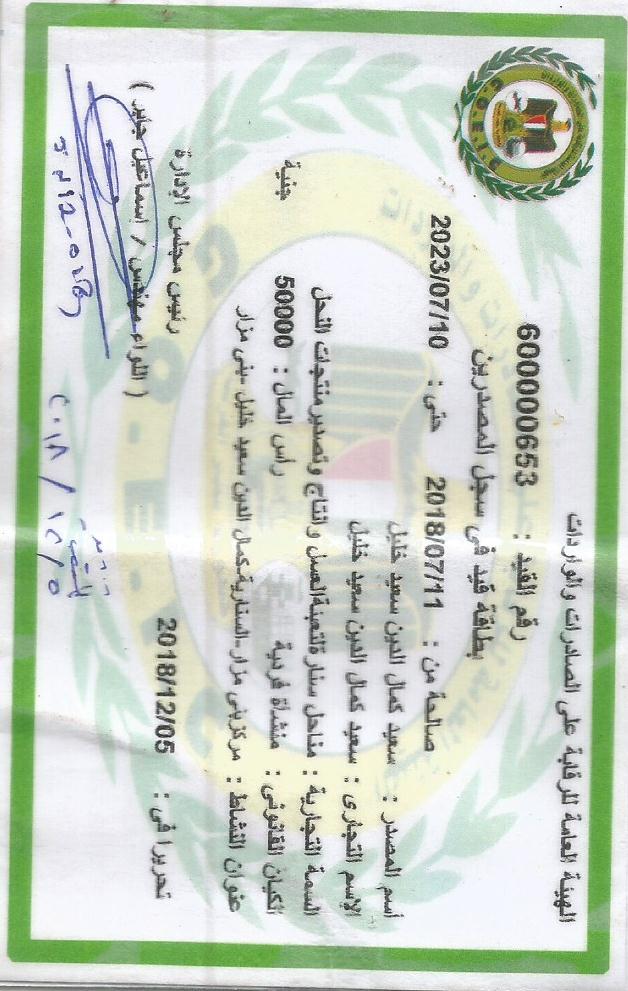 الهيئة العامة للرقابة على الصادرات والواردات
رقم القيد : 600000653
بطاقة قيد فى سجل المصدرين
صالحة من : 2018/07/11 حتى : 2023/07/10
أسم المصدر : سعيد كمال الدين سعيد خليل
الاسم التجارى : سعيد كمال الدين سعيد خليل
السمة التجارية : مناحل سفارة لتعبئة العسل وانتاج وتصدير منتجات النحل
الكيان القانونى : منشاة فردية رأس المال : 50000 جنية
عنوان النشاط : مركز بنى مزار-السنارية كمال الدين سعيد خليل -بنى مزار
تحريرا فى : 2018/12/05
رئيس مجلس الإدارة
( اللواء مهندس / إسماعيل جابر )
٢٠١٨/١٢/٥
G.O.E.I.C